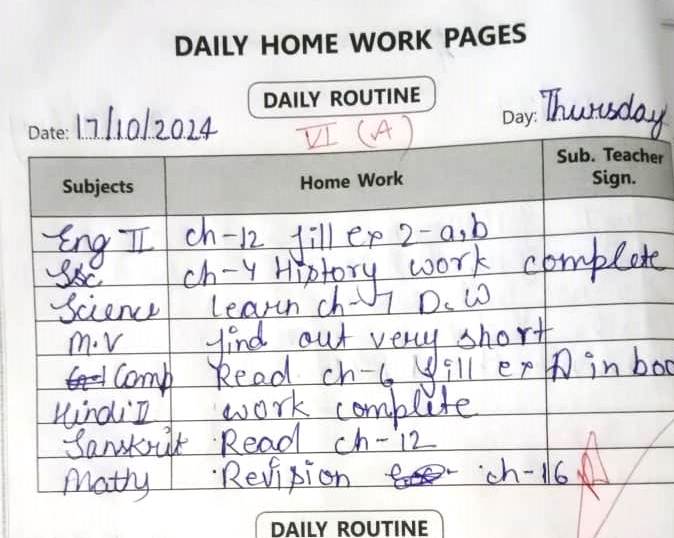 DAILY HOME WORK PAGES
DAILY ROUTINE
Date: 17/10/2024 VI (A) Day: Thursday
Subjects Home Work Sub. Teacher Sign.
Eng II ch-12 fill ex 2-a,b
Ssc ch-4 History work complete
Science learn ch-7 D.W
M.V find out very short
Comp Read ch-6 fill ex A in boo
Hindi II work complete
Sanskrit Read ch-12
Maths Revision ch-16
DAILY ROUTINE